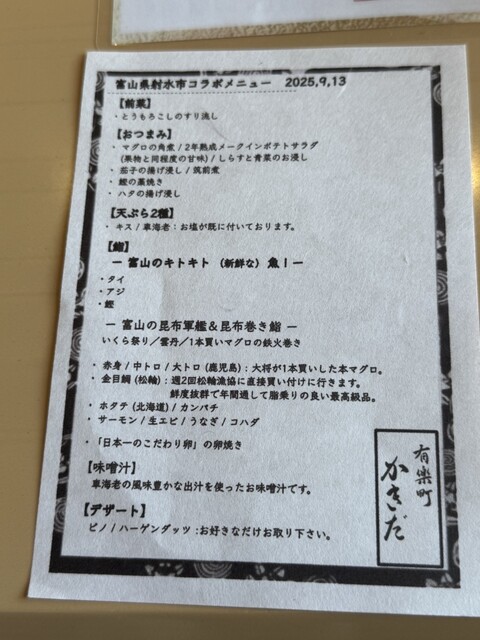 富山県射水市コラボメニュー　2025,9,13
【前菜】
・とうもろこしのすり流し
【おつまみ】
・マグロの角煮 / 2年熟成メークインポテトサラダ
(果物と同程度の甘味) / しらすと青菜のお浸し
・茄子の揚げ浸し / 筑前煮
・鰹の藁焼き
・ハタの揚げ浸し
【天ぷら2種】
・キス / 車海老：お塩が既に付いております。
【鮨】
ー 富山のキトキト （新鮮な） 魚！ー
・タイ
・アジ
・鰹
ー 富山の昆布軍艦＆昆布巻き鮨 ー
いくら祭り／雲丹／1本買いマグロの鉄火巻き
・赤身 / 中トロ / 大トロ (鹿児島)：大将が1本買いした本マグロ。
・金目鯛 (松輪)：週2回松輪漁協に直接買い付けに行きます。
鮮度抜群で年間通して脂乗りの良い最高級品。
・ホタテ (北海道) / カンパチ
・サーモン / 生エビ / うなぎ / コハダ
・「日本一のこだわり卵」の卵焼き
【味噌汁】
車海老の風味豊かな出汁を使ったお味噌汁です。
【デザート】
ピノ / ハーゲンダッツ：お好きなだけお取り下さい。
有楽町
かきだ